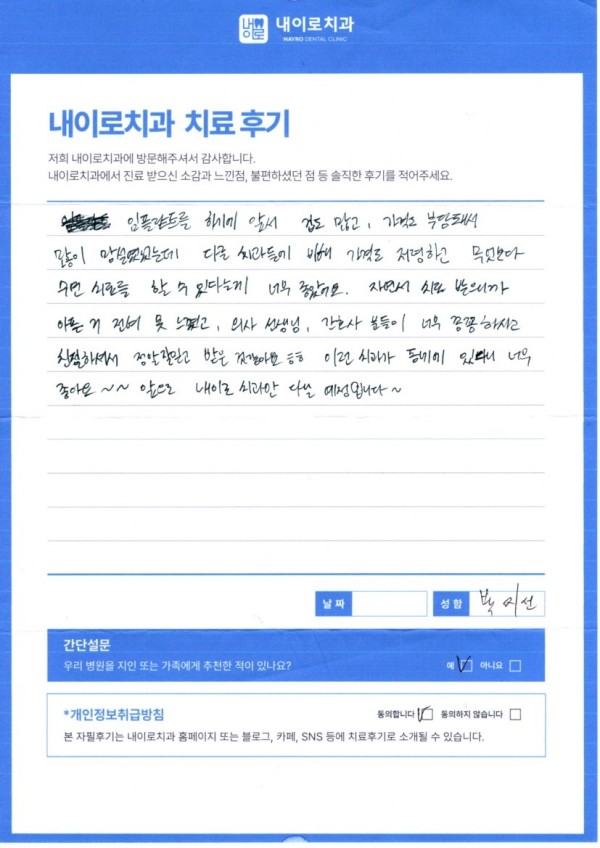 내이로치과
NAYRO DENTAL CLINIC
내이로치과 치료 후기
저희 내이로치과에 방문해주셔서 감사합니다.
내이로치과에서 진료 받으신 소감과 느낀점, 불편하셨던 점 등 솔직한 후기를 적어주세요.
임플란트를 하기에 앞서 겁도 많고, 가격도 부담돼서
많이 망설였었는데 다른 치과들에 비해 가격도 저렴하고 무엇보다
수면 치료를 할 수 있다는게 너무 좋았어요. 자면서 치료 받으니까
아픈 거 전혀 못 느꼈고, 의사 선생님, 간호사 분들이 너무 꼼꼼하시고
친절하셔서 정말 잘 받은 것같아요 ㅎㅎ 이런 치과가 동네에 있다니 너무
좋아요 ~~ 앞으로 내이로 치과만 다닐 예정입니다~
날 짜
성 함 박 미 선
간단설문
우리 병원을 지인 또는 가족에게 추천한 적이 있나요? 예 아니요
*개인정보취급방침 동의합니다 동의하지 않습니다
본 자필후기는 내이로치과 홈페이지 또는 블로그, 카페, SNS 등에 치료후기로 소개될 수 있습니다.